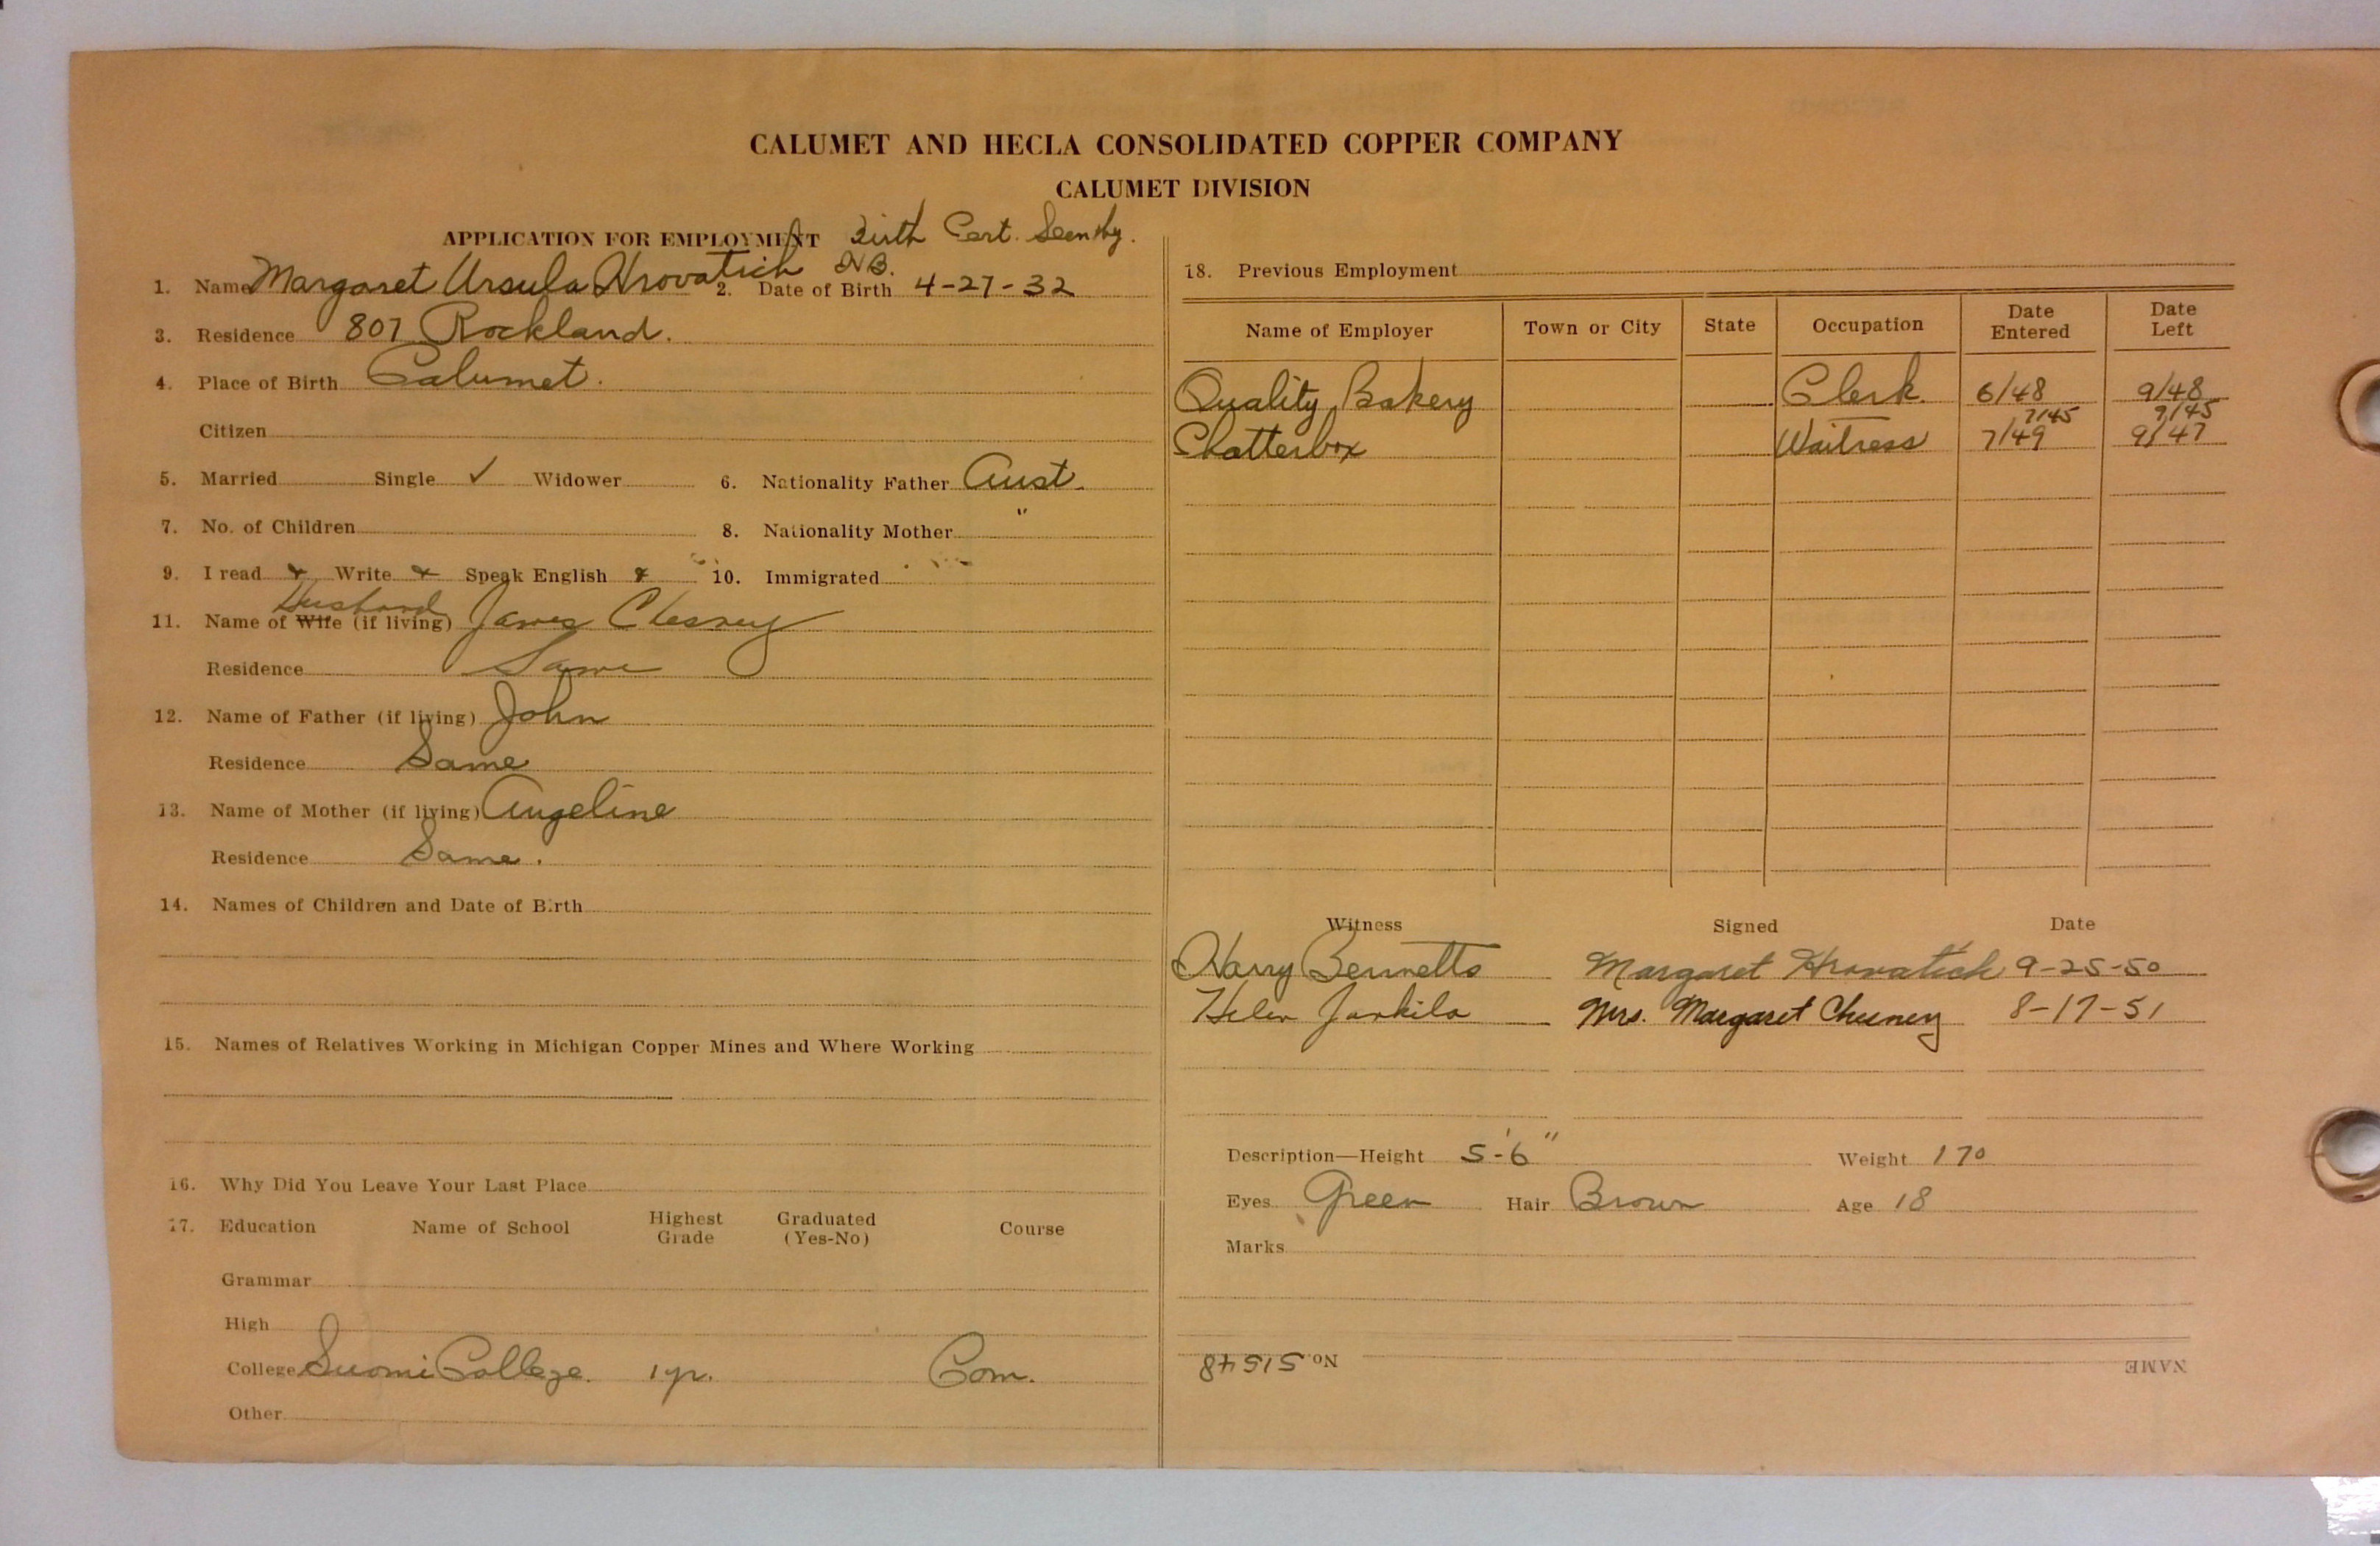 CALUMET AND HECLA CONSOLIDATED COPPER COMPANY
CALUMET DIVISION
APPLICATION FOR EMPLOYMENT Birth Cert. Seen by.
H.B.
1. Name Margaret Ursula Hrovatich 2. Date of Birth 4-27-32
3. Residence 807 Rockland.
4. Place of Birth Calumet.
Citizen
5. Married Single ✓ Widower 6. Nationality Father Aust.
7. No. of Children 8. Nationality Mother "
9. I read Write Speak English 10. Immigrated
Husband
11. Name of Wife (if living) James Chesney
Residence Same
12. Name of Father (if living) John
Residence Same
13. Name of Mother (if living) Angeline
Residence Same.
14. Names of Children and Date of Birth
15. Names of Relatives Working in Michigan Copper Mines and Where Working
16. Why Did You Leave Your Last Place
17. Education Name of School Highest Grade Graduated (Yes-No) Course
Grammar
High
College Suomi College. 1 yr. Com.
Other
18. Previous Employment
Name of Employer Town or City State Occupation Date Entered Date Left
Quality Bakery Clerk 6/48 9/48
7/45 9/45
Chatterbox Waitress 7/49 9/47
Witness Signed Date
Harry Bennetts Margaret Hrovatich 9-25-50
Helen Mrs. Margaret Chesney 8-17-51
Description—Height 5'-6" Weight 170
Eyes Green Hair Brown Age 18
Marks
NAME No. 51548